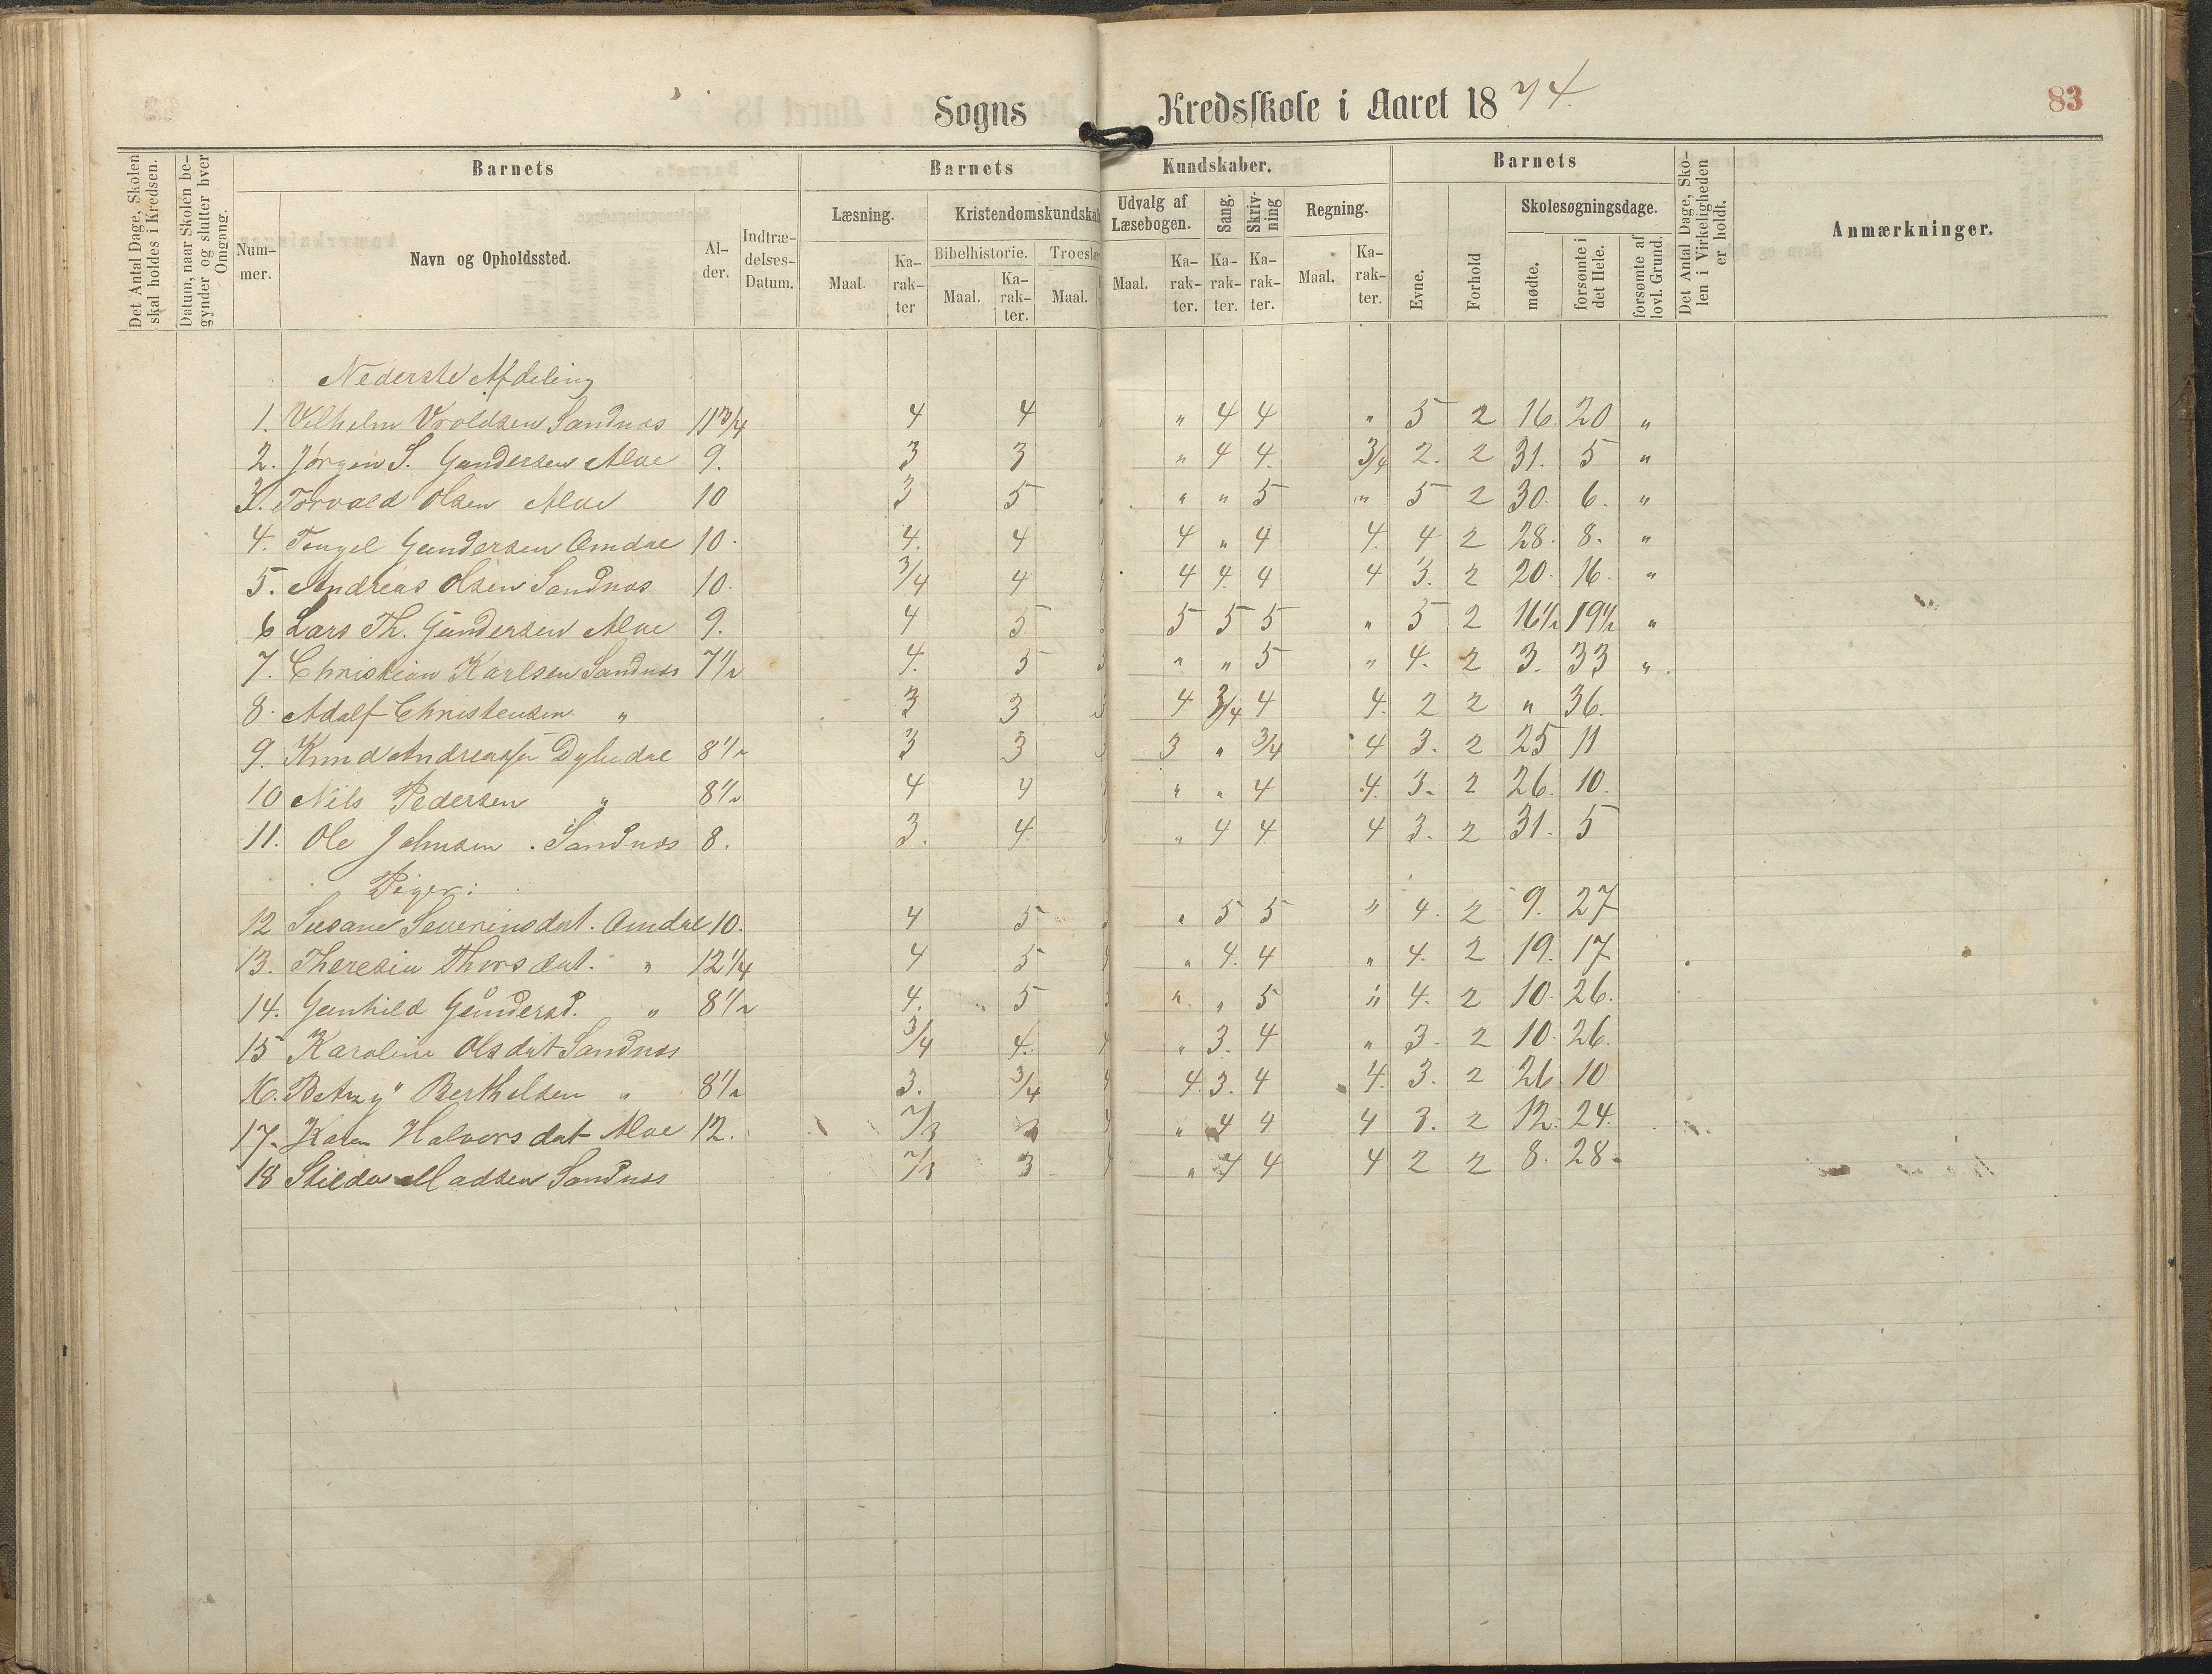 Sogns Kredsskole i Aaret 1874. 83
Det Antal Dage, Skolen skal holdes i Kredsen.
Datum, naar Skolen begynder og slutter hver Omgang.
Barnets Barnets Kundskaber. Barnets
Det Antal Dage, Skolen i Virkeligheden er holdt.
Anmærkninger.
Nummer. Navn og Opholdssted. Alder. Indtrædelses-Datum.
Læsning. Kristendomskundskab Udvalg af Læsebogen. Sang. Skrivning Regning.
Evne. Forhold Skolesøgningsdage.
Bibelhistorie. Troeslæ
Maal. Karakter Maal. Karakter. Maal. Maal. Karakter. Karakter. Karakter. Maal. Karakter.
mødte. forsømte i det Hele. forsømte af lovl. Grund.
Nederste Afdeling
1. Vilhelm Vroldsen Sandnæs 11 3/4 4 4 " 4 4 " 5 2 16. 20 "
2. Jørgen S. Gundersen Alve 9. 3 3 " 4 4. 3/4 2. 2 31. 5 "
3. Torvald Olsen Alve 10 3 5 " " 5 " 5 2 30. 6. "
4. Tengel Gundersen Omdal 10. 4. 4 4 " 4 4. 4 2 28. 8. "
5. Andreas Olsen Sandnæs 10. 3/4 4 4 4. 4 4 3. 2 20. 16. "
6 Lars Th. Gundersen Alve 9. 4 5 5 5 5 " 5 2 16 1/2 19 1/2 "
7. Christian Karlsen Sandnæs 7 1/2 4. 5 " " 5 " 4. 2 3. 33 ".
8. Adolf Christensen " 3 3 4 3/4 4 4. 2 2 " 36.
9. Knud Andreassen Dybedal 8 1/2 3 3 3 " 3/4 4 3. 2 25 11
10 Nils Pedersen " 8 1/2 4 4 " " 4 4. 3. 2 26. 10.
11. Ole Johnsen. Sandnæs 8. 3. 4 " 4 4 4 3. 2 31. 5
Piger:
12 Susane Severinsdat. Omdal 10. 4 5 " 5 5 " 4. 2 9. 27
13. Theresia Thorsdat. " 12 1/4 4 5 " 4. 4 " 4. 2 19. 17
14. Gunhild Gundersd. " 8 1/2 4. 5 " " 5 " 4. 2 10. 26.
15 Karoline Olsdat Sandnæs 3/4 4. " 3. 4 " 3. 2 10. 26.
16. Betzy Berthelsen " 8 1/2 3. 3/4 4. 3. 4 4. 3. 2 26 10
17. Karen Halvorsdat Alve 12. 2/3 3 " 4 4 4 3. 2 12. 24.
18 Madsen Sandnæs 2/3 3 " 4 4 4 2 2 8. 28.